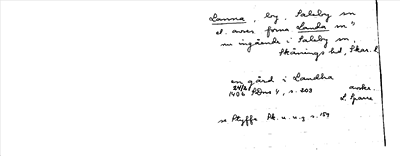 Lanna, by, Saleby sn
el. avser forna Landa sn,
nu ingående i Saleby sn,
Skånings hd, Skar. l.
en gård i Landha
24/2 1406 SDns 1, s. 203 avskr.
L. Sparre
se Styffe Sk. u. u. 3 s. 159